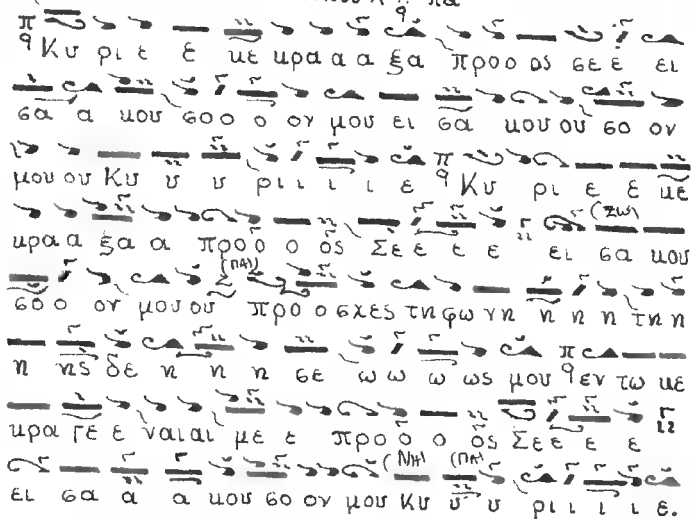 Κυ ρι ε ε κε κρα α α ξα προ ο ος σε ε ει
σα α κου σο ο ο ον μου ει σα κου ου σο ον
μου ου Κυ υ υ ρι ι ι ι ε Κυ ρι ε ε κε
κρα α ξα α προ ο ο ος Σε ε ε ε ει σα κου
σο ο ον μου ου προ ο σχες τη φω νη η η η τη η
η ης δε η η η σε ω ω ω ως μου εν τω κε
κρα γε ε ναι αι με ε προ ο ο ος Σε ε ε ε
ει σα α α κου σο ον μου Κυ υ υ ρι ι ι ι ε.